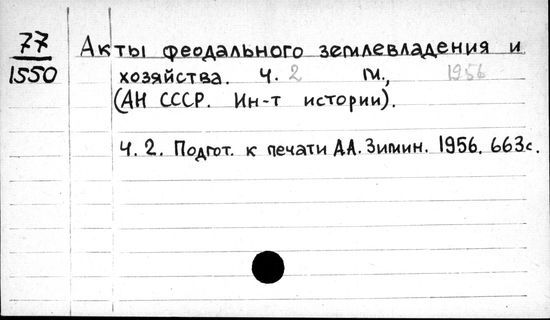 77
1550
Акты феодального землевладения и
хозяйства. Ч. 2 М., 1956
(АН СССР. Ин-т истории).
Ч. 2. Подгот. к печати А.А. Зимин. 1956. 663с.